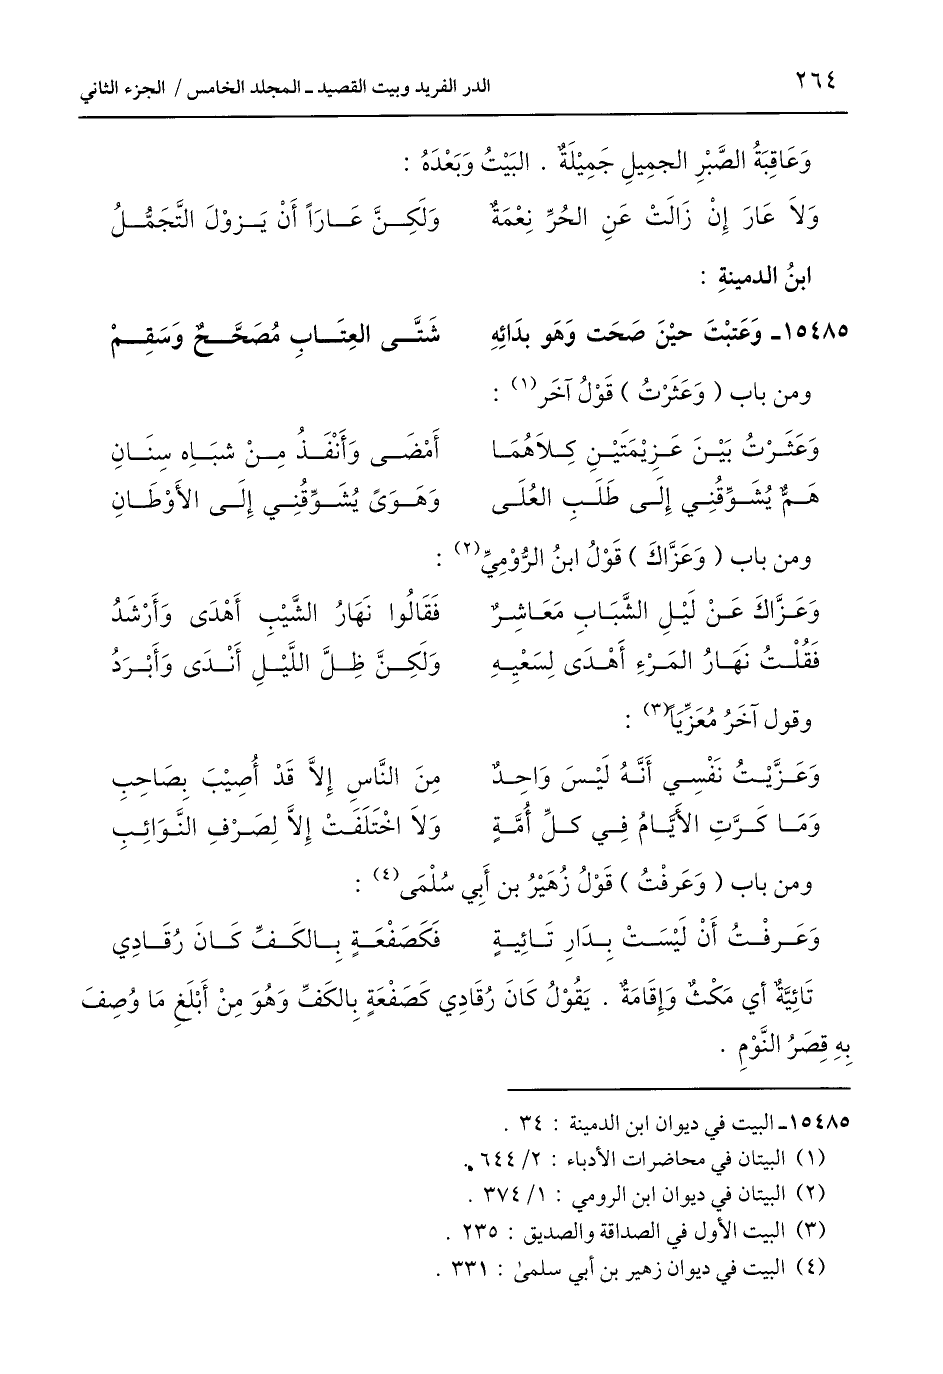 ٢٦٤ الدر الفريد وبيت القصيد ـ المجلد الخامس / الجزء الثاني
وَعَاقِبَةُ الصَّبْرِ الجميلِ جَمِيْلَةٌ . البَيْتُ وَبَعْدَهُ :
وَلاَ عَارَ إِنْ زَالَتْ عَنِ الحُرِّ نِعْمَةٌ وَلَكِنَّ عَارَاً أَنْ يَزوْلَ التَّجَمُّلُ
ابنُ الدمينةِ :
١٥٤٨٥ـ وَعَتبْتَ حيْنَ صَحَت وَهَو بدَائِهِ شَتَّى العِتَابِ مُصَحَّحٌ وسَقِمْ
ومن باب ( وَعَثَرْتُ ) قَوْلُ آخَر(١) :
وَعَثَرْتُ بَيْنَ عَزِيْمَتَيْنِ كِلاَهُمَا أَمْضَى وَأَنْفَذُ مِنْ شَبَاهِ سِنَانِ
هَمٌّ يُشَوِّقُنِي إِلَى طَلَبِ العُلَى وَهَوَىً يُشَوِّقُنِي إِلَى الأَوْطَانِ
ومن باب ( وَعَزَّاكَ ) قَوْلُ ابنُ الرُّوْمِيِّ(٢) :
وَعَزَّاكَ عَنْ لَيْلِ الشَّبَابِ مَعَاشِرٌ فَقَالُوا نَهَارُ الشَّيْبِ أَهْدَى وَأَرْشَدُ
فَقُلْتُ نَهَارُ المَرْءِ أَهْدَى لِسَعْيِهِ وَلَكِنَّ ظِلَّ اللَّيْلِ أَنْدَى وَأَبْرَدُ
وقول آخَرُ مُعَزِّيَاً(٣) :
وَعَزَّيْتُ نَفْسِي أَنَّهُ لَيْسَ وَاحِدٌ مِنَ النَّاسِ إِلاَّ قَدْ أُصِيْبَ بِصَاحِبِ
وَمَا كَرَّتِ الأَيَّامُ فِي كلِّ أُمَّةٍ وَلاَ اخْتَلَفَتْ إِلاَّ لِصَرْفِ النَّوَائِبِ
ومن باب ( وَعَرفْتُ ) قَوْلُ زُهَيْرُ بن أَبِي سُلْمَى(٤) :
وَعَرفْتُ أَنْ لَيْسَتْ بِدَارِ تَائِيةٍ فَكَصَفْعَةٍ بِالكَفِّ كَانَ رُقَادِي
تَائِيَّةٌ أي مَكْثٌ وَإِقَامَةٌ . يَقُوْلُ كَانَ رُقَادِي كَصَفْعَةٍ بِالكَفِّ وَهُوَ مِنْ أَبْلَغِ مَا وُصِفَ
بِهِ قِصَرُ النَّوْمِ .
١٥٤٨٥ـ البيت في ديوان ابن الدمينة : ٣٤ .
(١) البيتان في محاضرات الأدباء : ٢/ ٦٤٤ .
(٢) البيتان في ديوان ابن الرومي : ١/ ٣٧٤ .
(٣) البيت الأول في الصداقة والصديق : ٢٣٥ .
(٤) البيت في ديوان زهير بن أبي سلمىٰ : ٣٣١ .